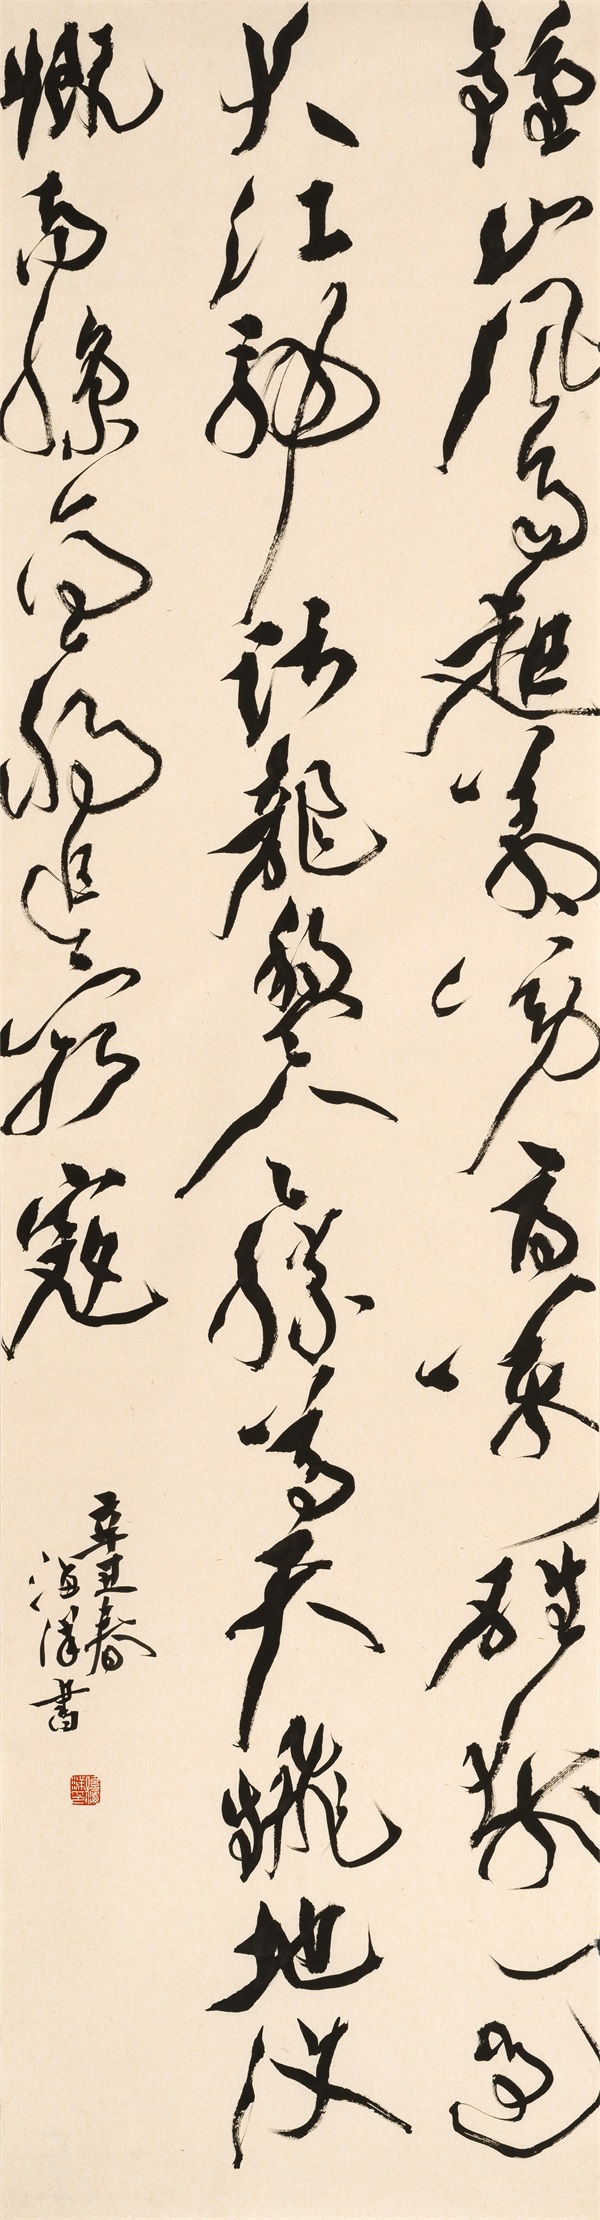 鍾山風雨起蒼黃百萬雄師過
大江虎踞龍盤今勝昔天翻地覆
慨而慷宜將追窮寇
辛丑春
海洋書